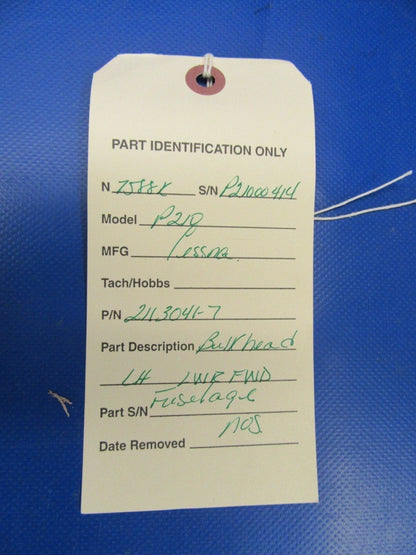 PART IDENTIFICATION ONLY
N 7588K S/N P21000414
Model P210
MFG Cessna
Tach/Hobbs
P/N 2113041-7
Part Description Bulkhead
LH LWR FWD
Part S/N Fuselage
Date Removed NOS